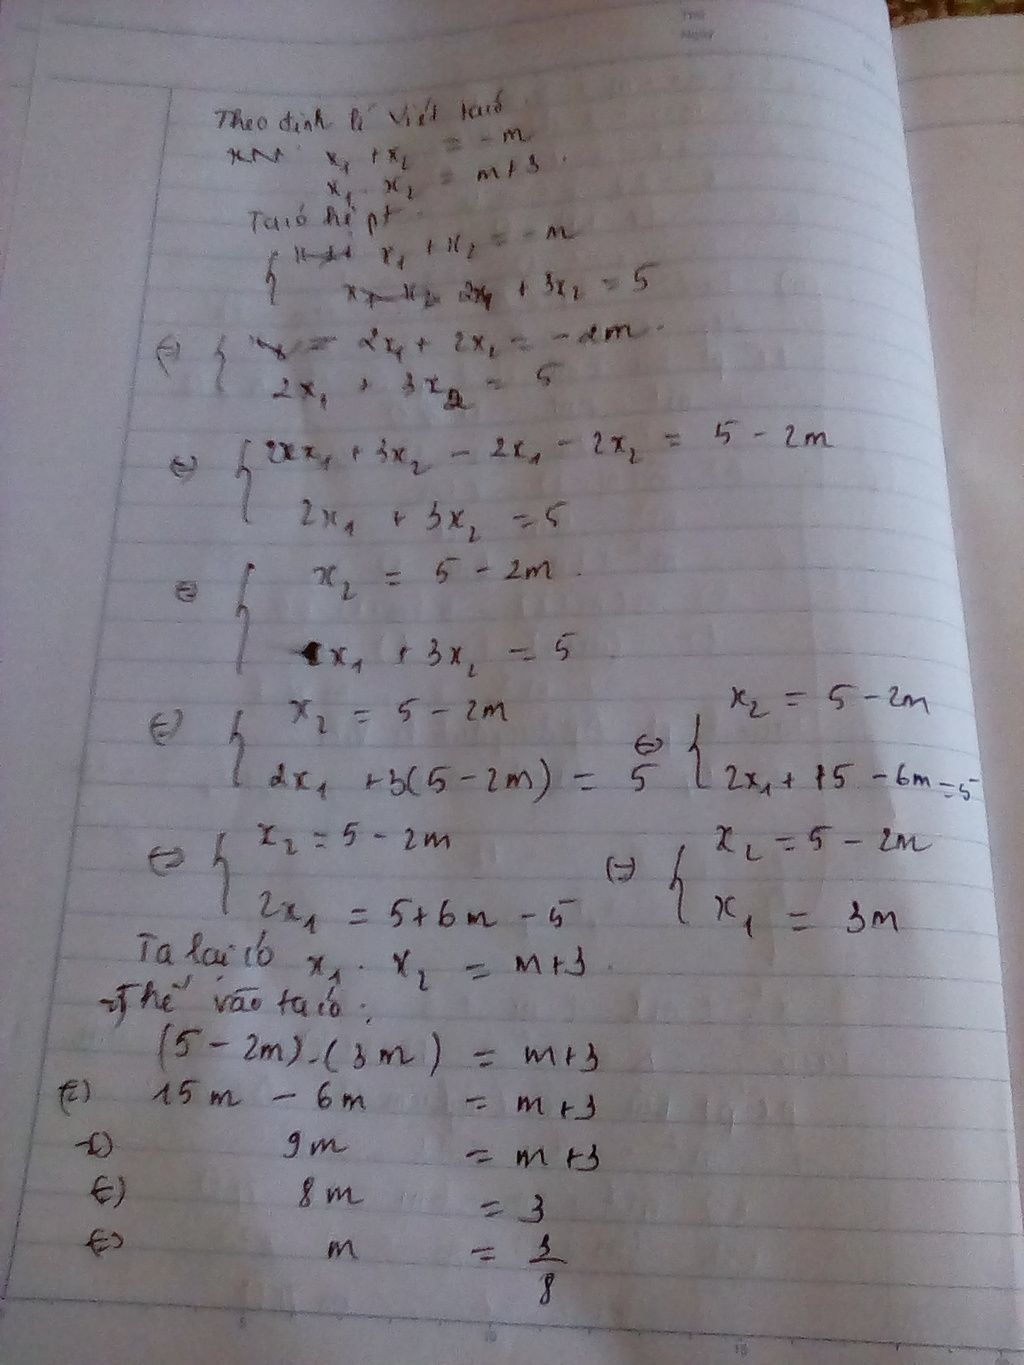 Thứ
Ngày
Theo định lí Viét ta có
x₁ + x₂ = -m
x₁ . x₂ = m+3.
Ta có hệ pt.
{ x₁ + x₂ = -m
2x₁ + 3x₂ = 5
(=) { 2x₁ + 2x₂ = -2m.
2x₁ + 3x₂ = 5
(=) { 2x₁ + 3x₂ - 2x₁ - 2x₂ = 5 - 2m
2x₁ + 3x₂ = 5
(=) { x₂ = 5 - 2m.
x₁ + 3x₂ = 5
(=) { x₂ = 5 - 2m
2x₁ + 3(5 - 2m) = 5
(=) { x₂ = 5 - 2m
2x₁ + 15 - 6m = 5
(=) { x₂ = 5 - 2m
2x₁ = 5 + 6m - 5
(=) { x₂ = 5 - 2m
x₁ = 3m
Ta lại có x₁ . x₂ = m+3.
Thế vào ta có:
(5 - 2m).(3m) = m+3
(=) 15m - 6m = m+3
(=) 9m = m+3
(=) 8m = 3
(=) m = 3/8
5 10 15